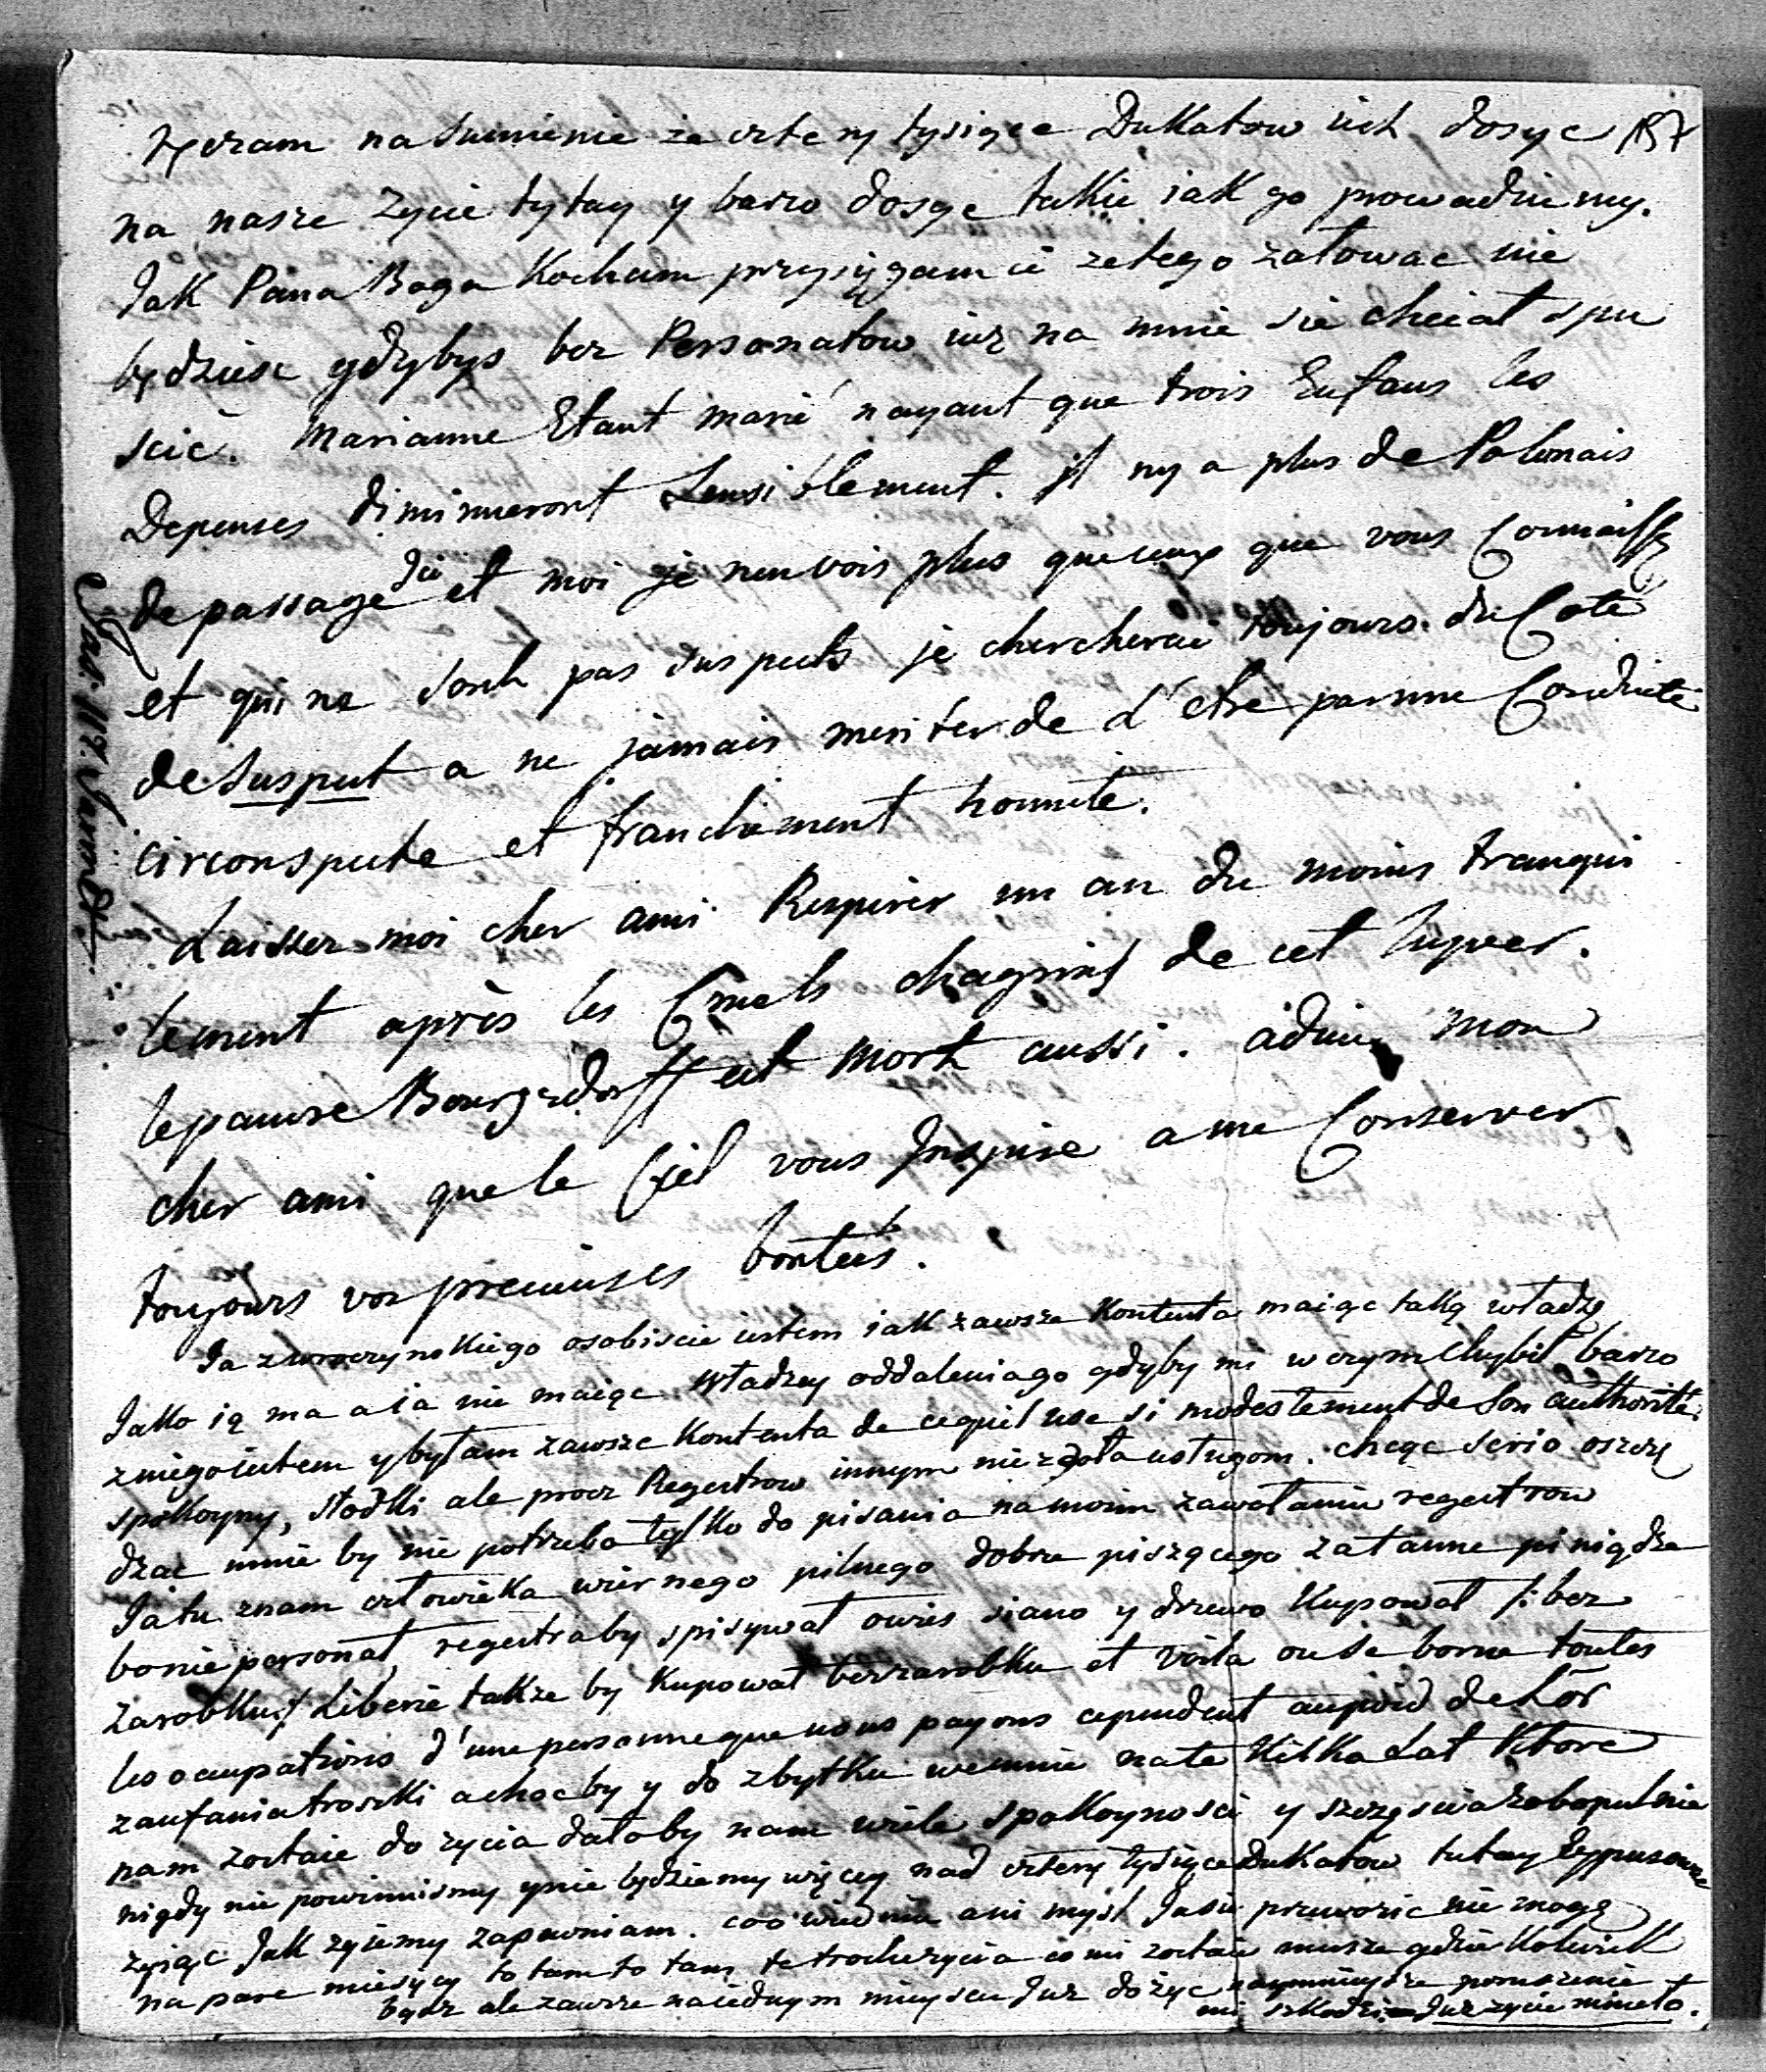 ręczam na Sumienie że cztery tysiące Dukatow iest dosyc 157
na nasze zycie tytay y barzo dosyc takie iak go prowadziemy.
Jak Pana Boga Kocham przysięgam ci ze tego załowac nie
będziesz gdybys bez Personatow iuz na mnie sie chciał spu
scic. Marianne Etant marié nayant que trois Enfans les
Depenses diminueront Sensiblement. il ny a plus de Polonais
de passage ici et moi je nen vois plus que ceux que vous Connaissez
et qui ne sont pas suspects je chercherai toujours du Coté
de Suspect a ne jamais meriter de L'etre par une Conduite
circonspecte et franchement honnete.
Laissez moi cher ami Respirer un an du moins tranqui
lement après les Cruels chagrins de cet hyver.
le pauvre Bourgsdorff est mort aussi. adieu mon
cher ami que le Ciel vous Inspire a me Conserver
toujours vos precieuses bontéés.
Ja z osobiscie iestem iak zawsze Kontenta maiąc taką władzę
Jako ią ma a ia nie maiąc władzy oddalenia go gdyby mi w czym chybił barzo
z niego iestem y byłam zawsze Kontenta de ce qu'il use si modestement de Son authorité
spokoyny, słodki ale procz Regestrow innym nie zdoła usługom. chcąc serio oszczę
dzac mnie by nie potrzeba tylko do pisania na moim zawołaniu regestrow
Ja tu znam człowieka wiernego pilnego dobrze piszącego za tanne piniądze
bo nie personat, regestra by spisywał owies siano y drzewo Kupował /: bez
zarobku :/ Liberie takze by Kupował bez zarobku et voila ou se borne toutes
les ocupations d'une personne que nous payons cependent au poid de Lor
zaufania troszki a choc by y do zbytku we mnie na te Kilka Lat Ktore
nam zostaie do zycia dałoby nam wiele spokoynosci y szczęscia
nigdy nie powinnismy y nie będziemy więcey nad cztery tysiące Dukatow tutay
zyiąc Jak zyiemy zapewniam. co o Wiedniu ani mysl Ja sie przewozic nie mogę
na pare miesięcy to tam to tam te troche zycia co mi zostaie musze gdzie Kolwiek
bądz ale zawsze na iednym mieyscu Juz dozyc naymnieysze poruszenie
mi szkodzi Juz zycie mineło.